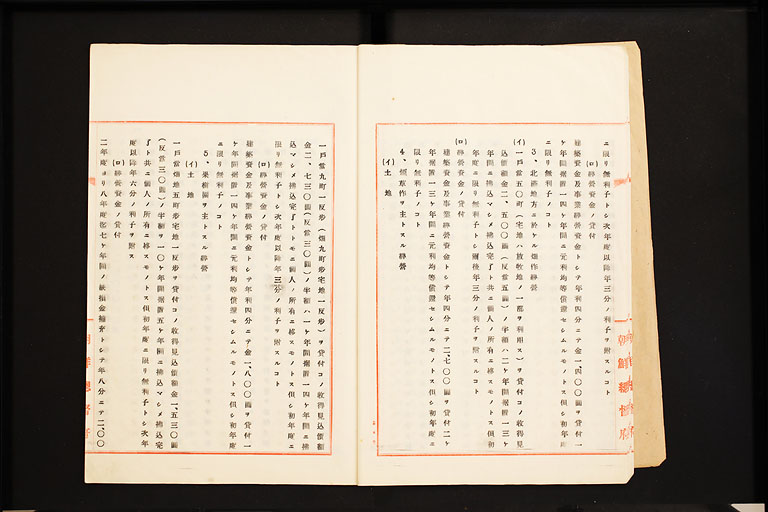 ニ限リ無利子トシ次年度以降年三分ノ利子ヲ附スルコト
(ロ)経営資金ノ貸付
建築資金及事業経営資金トシテ年利四分ニテ金一、四〇〇圓ヲ貸付一
ケ年間据置一四ケ年間ニ元利均等償還セシムルモノトス但シ初年度
ニ限リ無利子ノコト
3、北鮮地方ニ於ケル畑作経営
(イ)一戸當五〇町(宅地ハ放牧地ノ一部ヲ利用ス)ヲ貸付コノ收得見
込價額金二、五〇〇圓(反當五圓)ノ半額ハ二ケ年間据置一三ケ
年間ニ拂込マシメ拂込完了ト共ニ個人ノ所有ニ移スモノトス但シ初
年度ニ限リ無利子トシ爾後年三分ノ利子ヲ附スルコト
(ロ)経営資金ノ貸付
建築資金及事業経営資金トシテ年四分ニテ金二、七〇〇圓ヲ貸付二ケ
年据置一三ケ年間ニ元利均等償還セシムルモノトス但シ初年度ニ
限リ無利子ノコト
4、煙草作ヲ主トスル経営
(イ)土地
一戸當九町一反歩(畑九町歩宅地一反歩)ヲ貸付コノ收得見込價額
金二、七三〇圓(反當三〇圓)ノ半額ハ一ケ年間据置一四ケ年間ニ拂
込マシメ拂込完了トトモニ個人ノ所有ニ移スモノトス但シ初年度ニ
限リ無利子トシ次年度以降年三分ノ利子ヲ附スルコト
(ロ)経営資金ノ貸付
建築資金及事業経営資金トシテ年利四分ニテ金一、八〇〇圓ヲ貸付一
ケ年間据置一四ケ年間ニ元利均等償還セシムルモノトス但シ初年度
ニ限リ無利子ノコト
5、果樹園ヲ主トスル経営
(イ)土地
一戸當畑地五町歩宅地一反歩ヲ貸付コノ收得見込價額金一、五三〇圓
(反當三〇圓)ノ半額ヲ一〇ケ年間据置五ケ年間ニ拂込マシメ拂込完
了ト共ニ個人ノ所有ニ移スモノトス但初年度ニ限リ無利子トシ次年
度以降年六分ノ利子ヲ附ス
(ロ)経営資金ノ貸付
二年度ヨリ八年度迄七ケ年間ノ缺損金補塡トシテ年八分ニテ二、〇〇
朝鮮總督府
朝鮮總督府